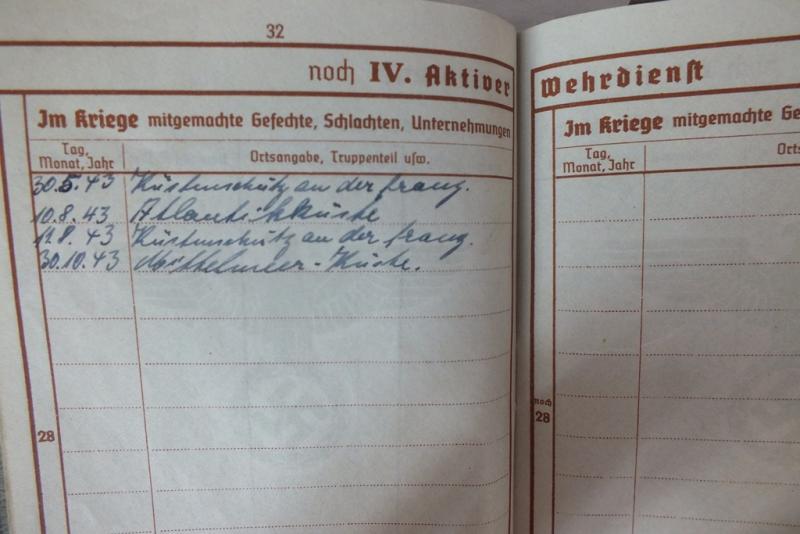 32
noch IV. Aktiver
Im Kriege mitgemachte Gefechte, Schlachten, Unternehmungen
Tag, Monat, Jahr
Ortsangabe, Truppenteil usw.
30.5.43 Küstenschutz an der franz.
10.8.43 Atlantikküste
11.8.43 Küstenschutz an der franz.
30.10.43 Mittelmeer-Küste.
28
Wehrdienst
Im Kriege mitgemachte Ge
Tag, Monat, Jahr
Orts
noch
28